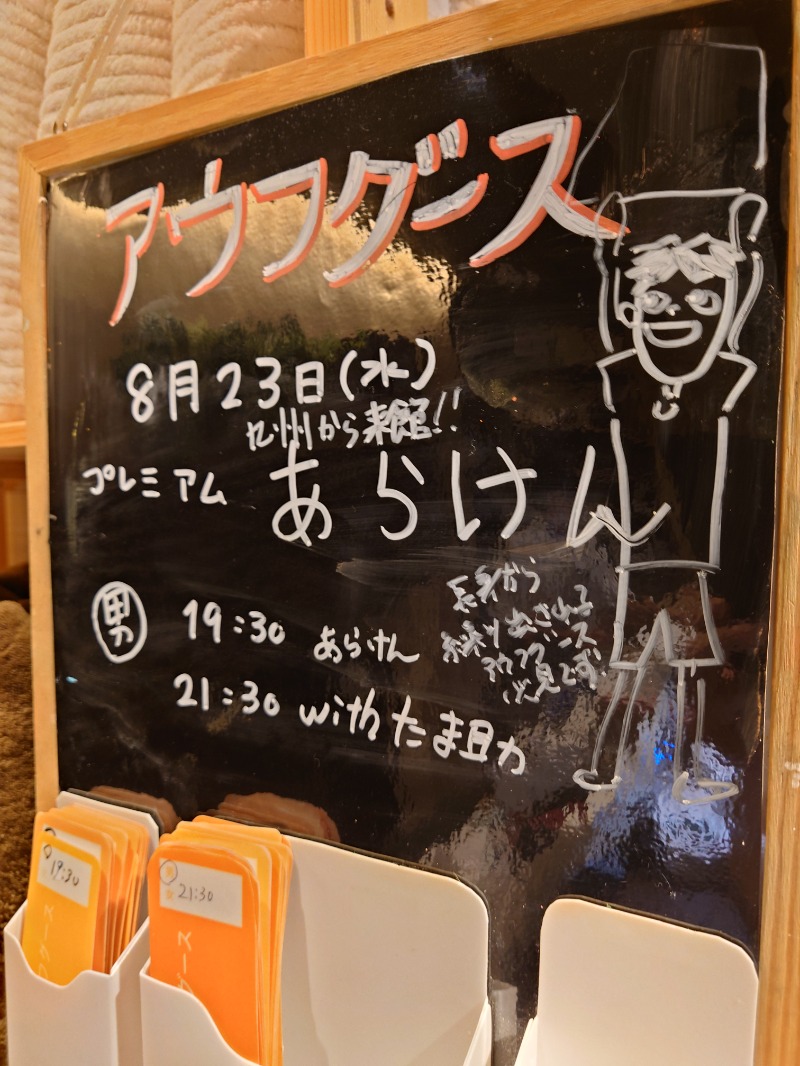 アウフグース
8月23日(水)
九州から来館!!
プレミアム あらけん
男 19:30 あらけん
21:30 withたま
長身から
繰りおされる
アウフグース
必見です!
19:30
21:30